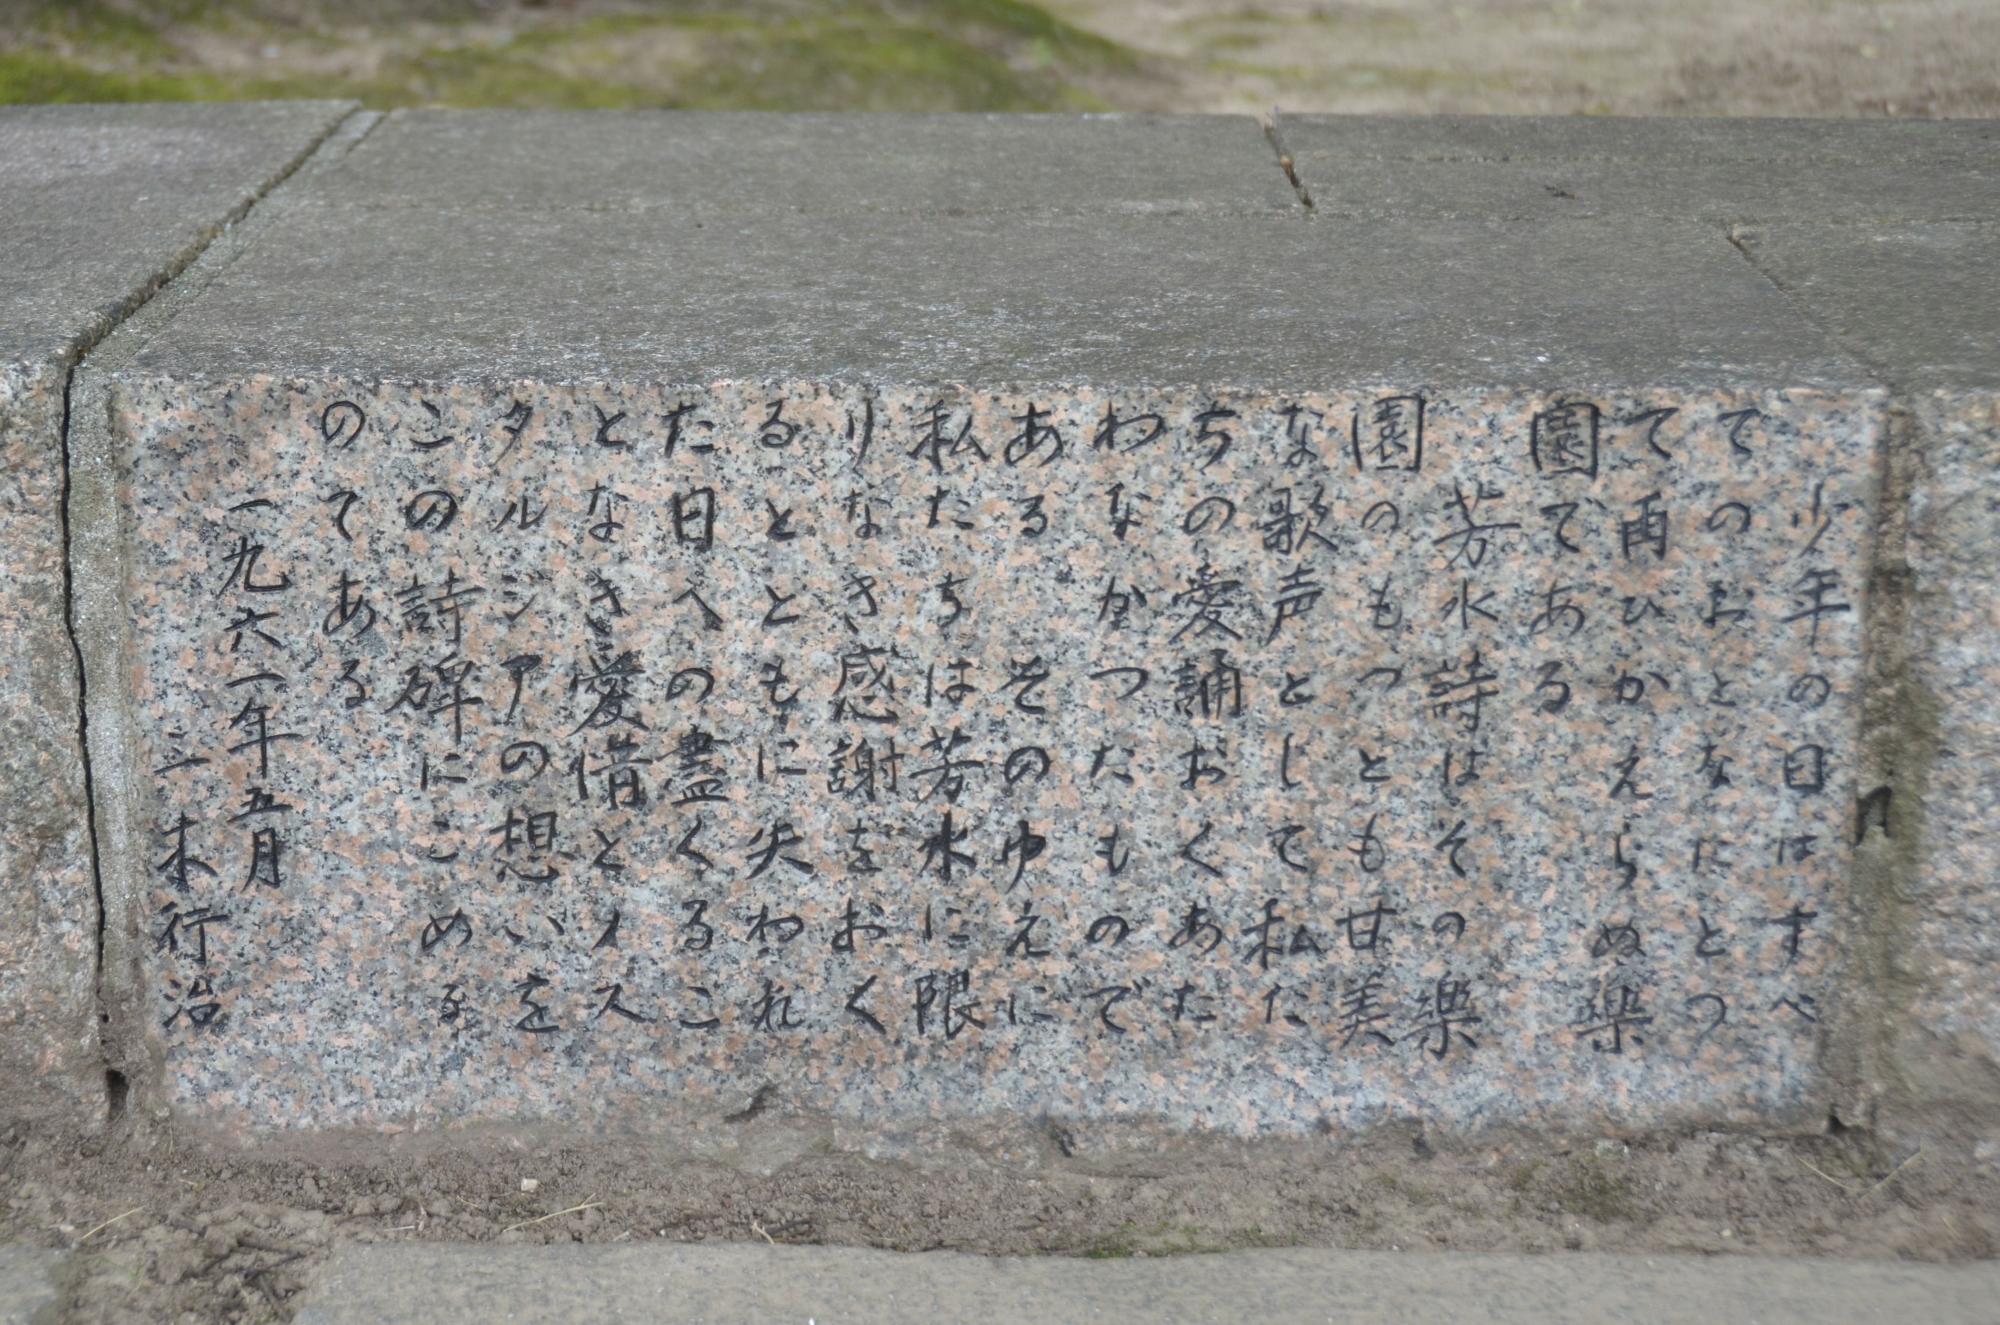 少年の日はすべ
てのおとなにとつ
て再ひかえらぬ樂
園である
芳水詩はその樂
園のもつとも甘美
な歌声として私た
ちの愛誦おくあた
わなかつたもので
ある そのゆえに
私たちは芳水に限
りなき感謝をおく
るとともに失われ
た日への盡くるこ
となき愛惜とノス
タルジアの想いを
この詩碑にこめる
のてある
一九六一年五月
三木行治